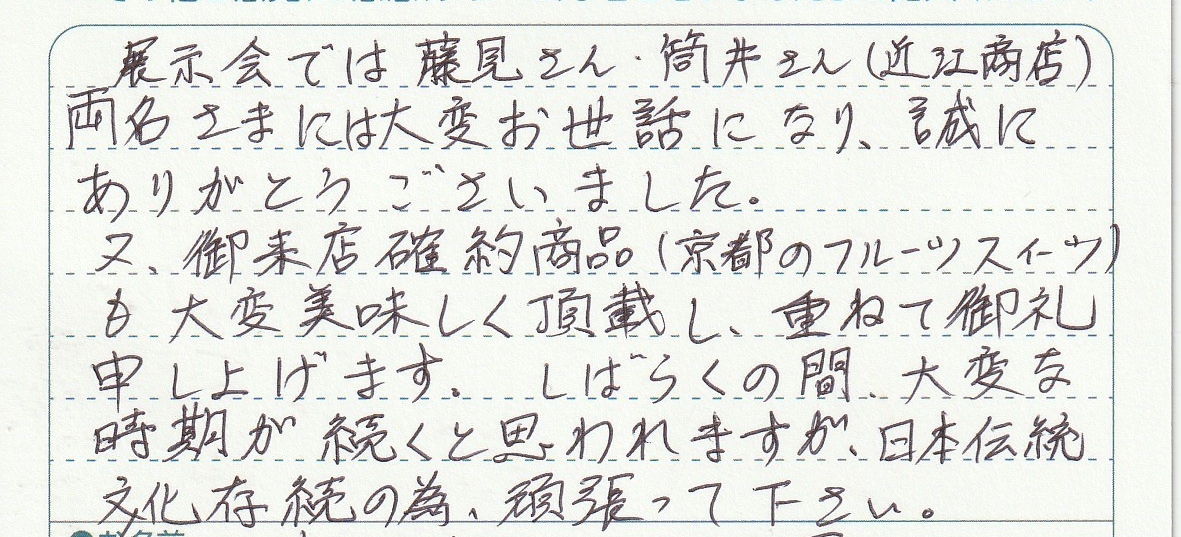 展示会では藤見さん・筒井さん(近江商店)
両名さまには大変お世話になり、誠に
ありがとうございました。
又、御来店確約商品(京都のフルーツスィーツ)
も大変美味しく頂載し、重ねて御礼
申し上げます。しばらくの間、大変な
時期が続くと思われますが、日本伝統
文化存続の為、頑張って下さい。